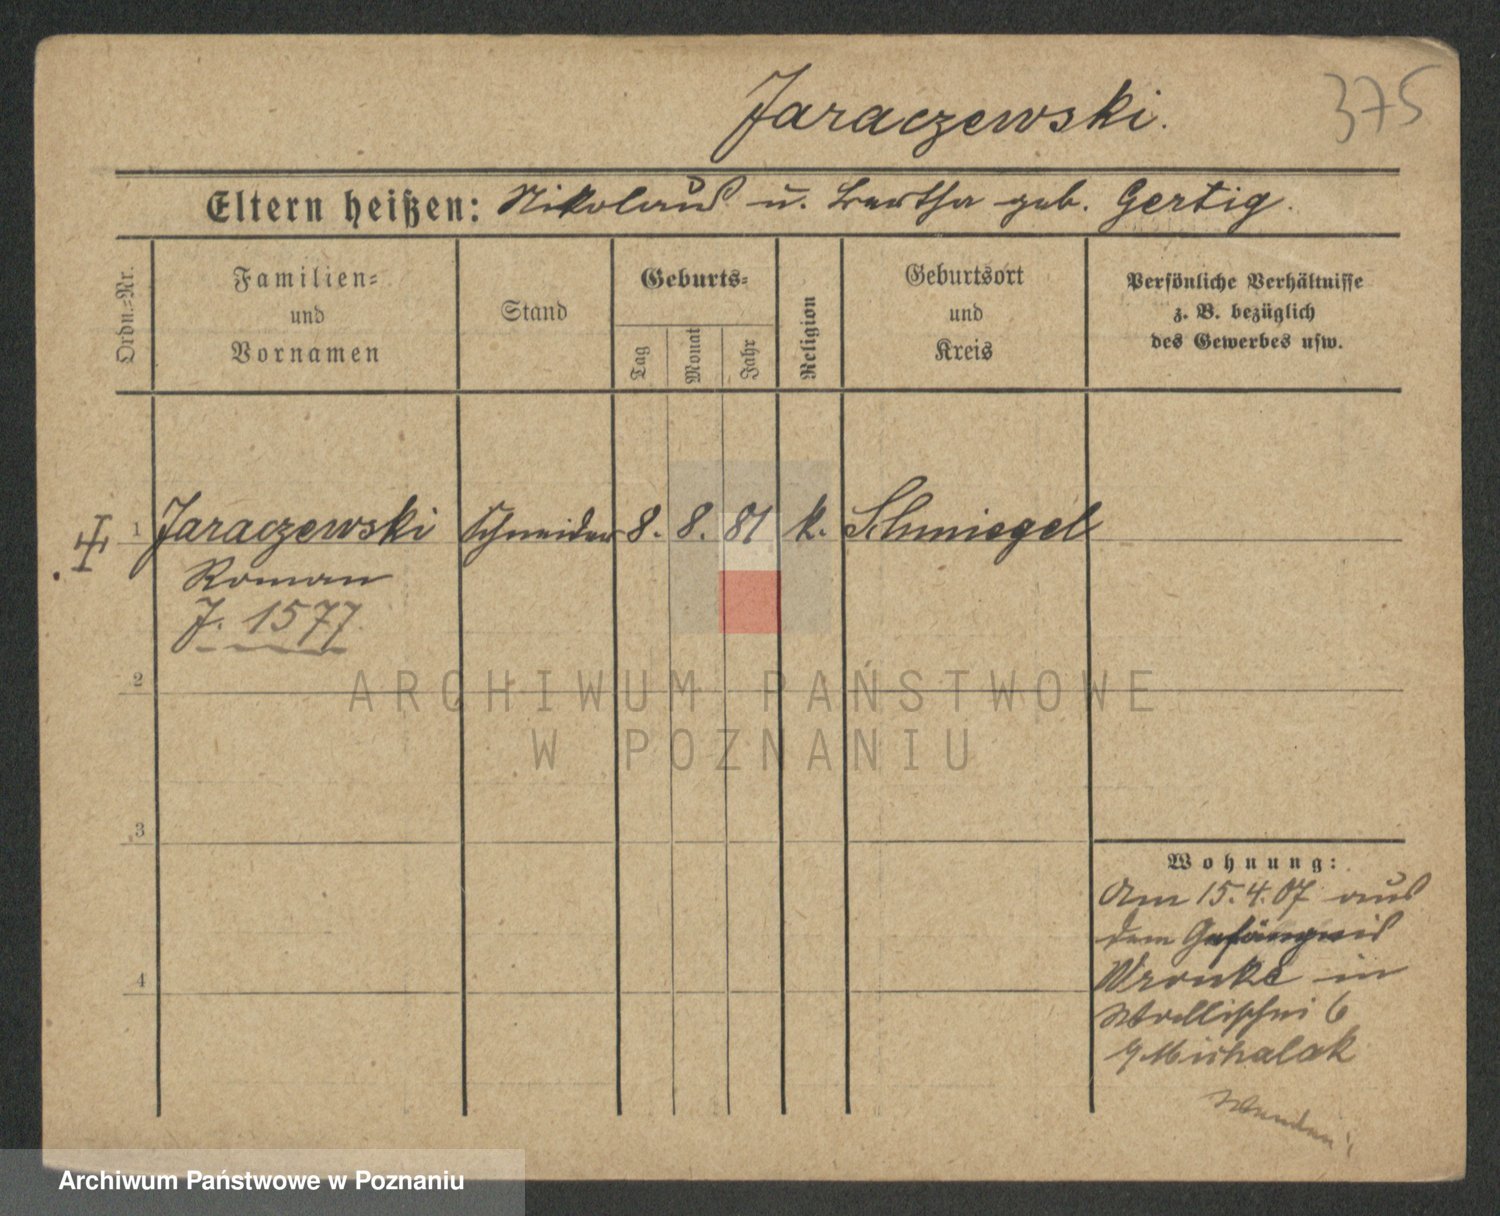 Jaraczewski.
375
Eltern heißen: Nikolaus u. Bertha geb. Gertig.
Ordn.=Nr.
Familien=
und
Vornamen
Stand
Geburts=
Tag
Monat
Jahr
Religion
Geburtsort
und
Kreis
Persönliche Verhältnisse
z. B. bezüglich
des Gewerbes usw.
1 Jaraczewski Schneider 8. 8. 81 k. Schmiegel
Roman
J. 1577.
2
3
4
Wohnung:
Am 15.4.07 aus
dem Gefängnis
Wronke in
Wallischei 6
Michalak
Wenden!
ARCHIWUM PAŃSTWOWE
W POZNANIU
Archiwum Państwowe w Poznaniu